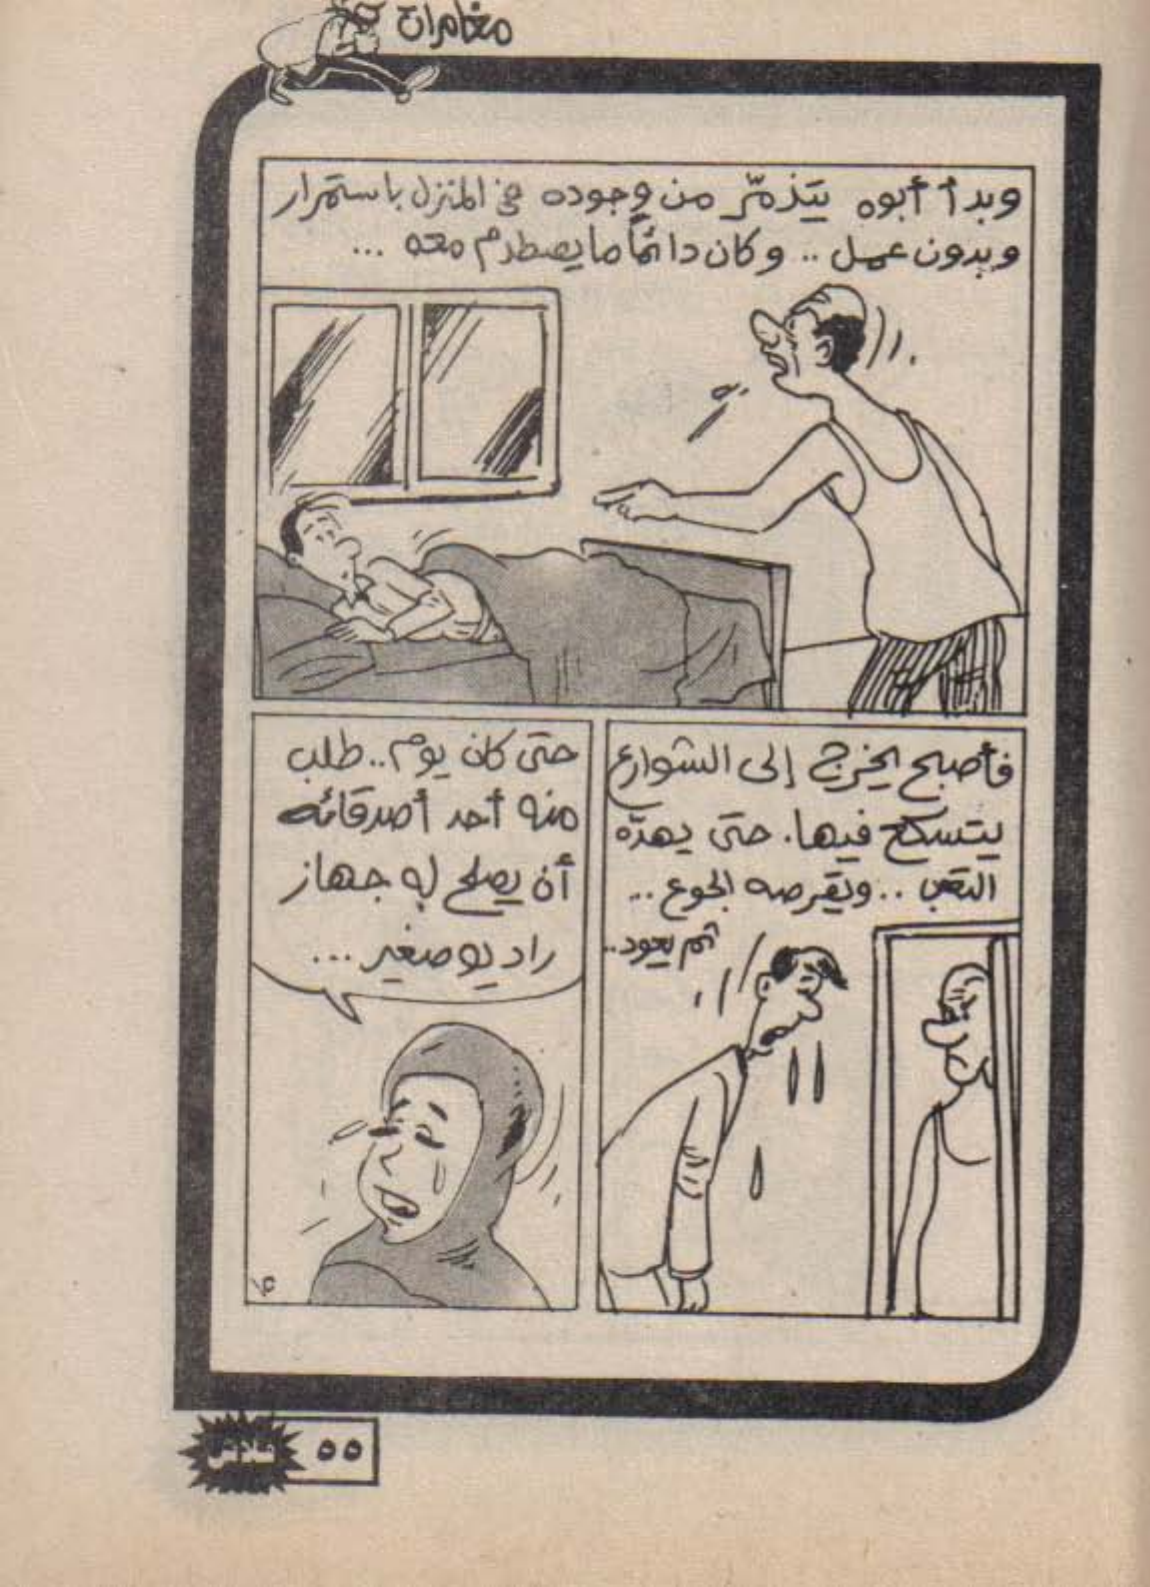 مغامرات
وبدأ أبوه يتذمّر من وجوده في المنزل باستمرار
وبدون عمل .. وكان دائمًا ما يصطدم معه ...
فأصبح يخرج إلى الشوارع
يتسكع فيها. حتى يهدّه
التعب .. ويقرصه الجوع ..
ثم يعود..
حتى كان يوم.. طلب
منه أحد أصدقائه
أن يصلح له جهاز
راديو صغير ...
١٥
٥٥
فلاش